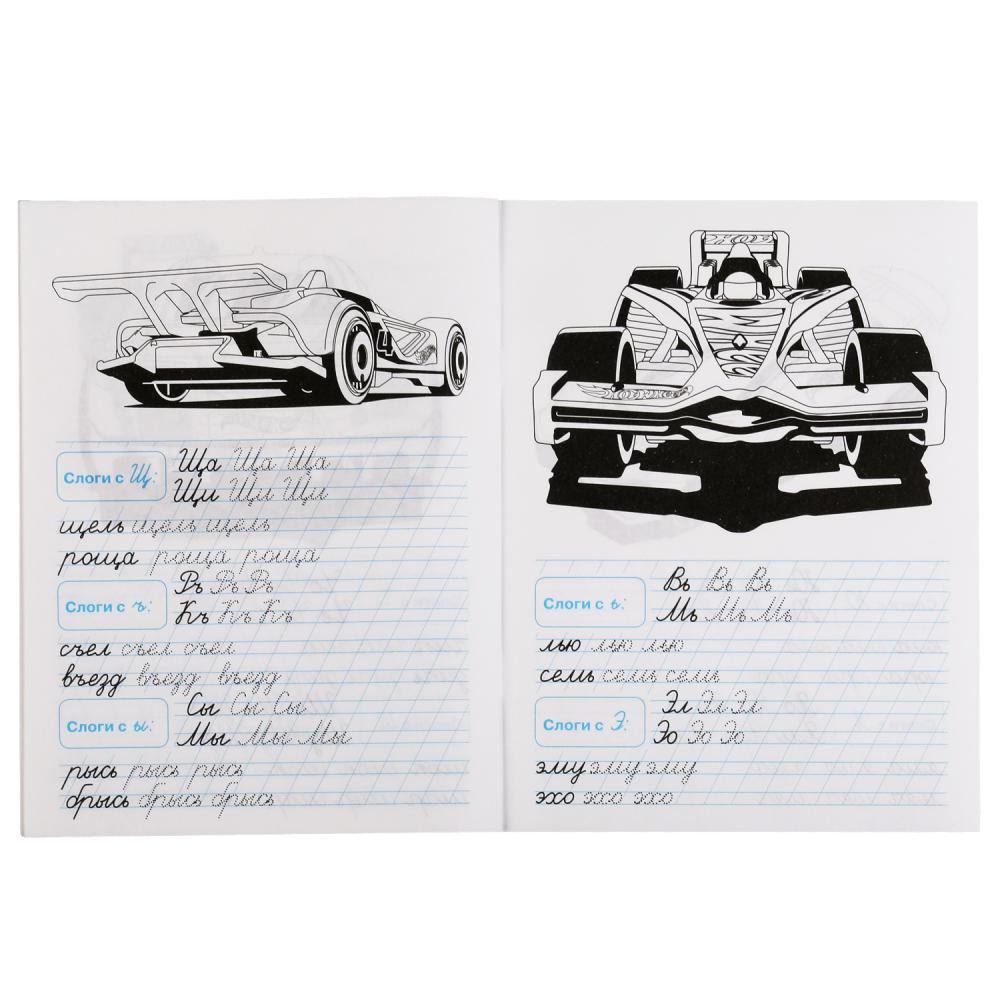 4
Слоги с Щ:
Ща Ща Ща
Щи Щи Щи
щель щель щель
роща роща роща
Слоги с ъ:
Ръ Ръ Ръ
Къ Къ Къ
съел съел съел
въезд въезд въезд
Слоги с ы:
Сы Сы Сы
Мы Мы Мы
рысь рысь рысь
брысь брысь брысь
Слоги с ь:
Вь Вь Вь
Мь Мь Мь
лью лью лью
семь семь семь
Слоги с Э:
Эл Эл Эл
Эо Эо Эо
эму эму эму
эхо эхо эхо